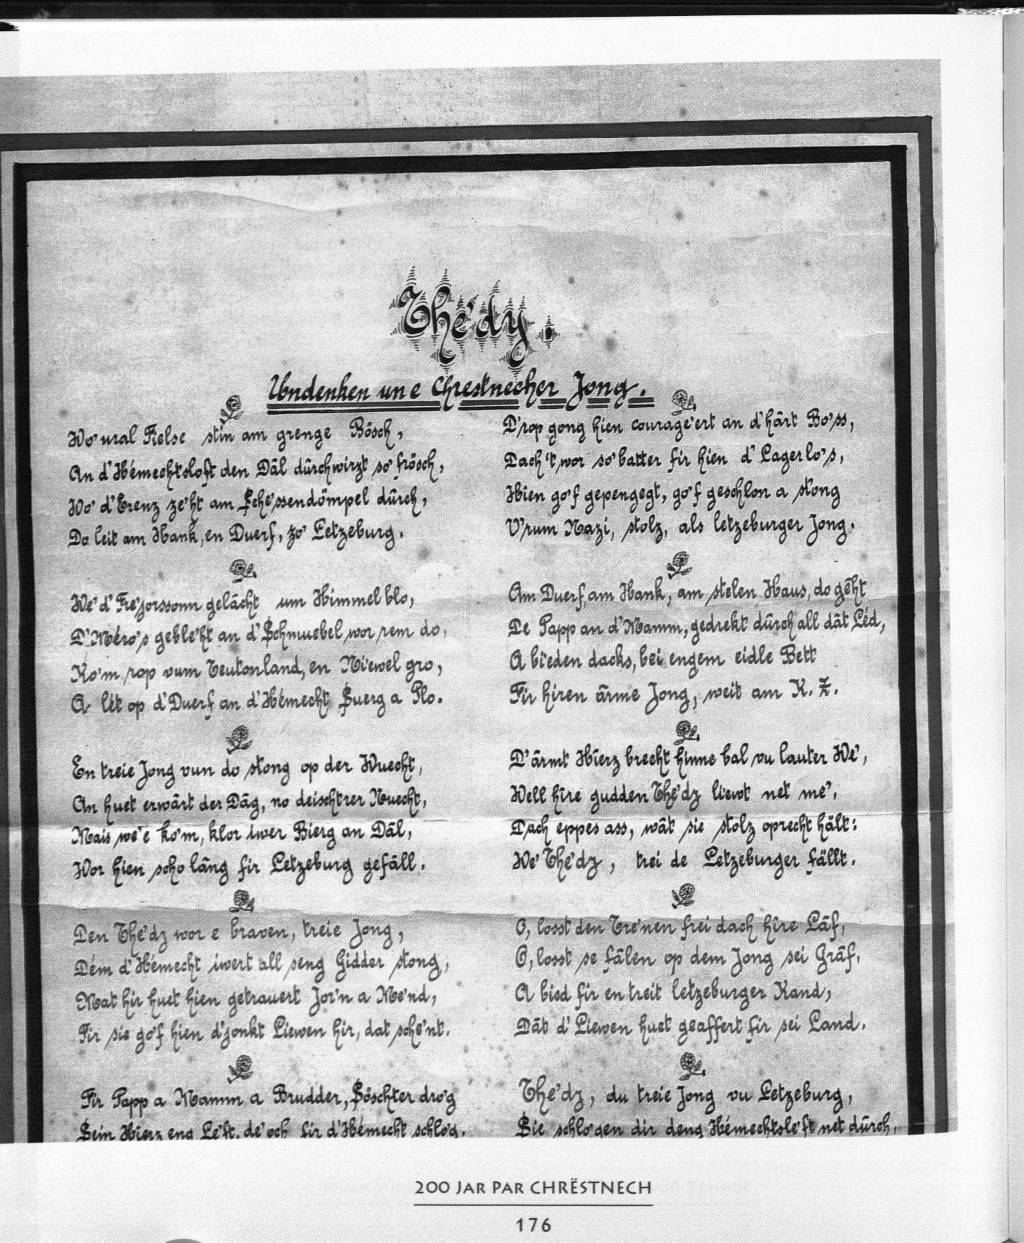 Thé'dy.
Undenken un e Chrestnecher Jong.
Wo' ural Fielse stin am grenge Bösch,
An d'Hémechtsloft den Däl dûrchwirzt so' frösch,
Wo' d'Erenz ze'ht am Sché'ssendömpel dûrch,
Do leit am Hank, en Duerf, zo' Letzeburg.
We' d'Fre'jorssonn gelächt um Himmel blo,
D'Méro's geble'ht an d'Schnuebel wor rem do,
Ko'm rop vum Teutonland, en Niewel gro,
A lét op d'Duerf an d'Hémecht Suerg a Plo.
En treie Jong vun do stong op der Wuecht,
An huet erwärt der Däg, no deischtrer Nuecht,
Mais we' e ko'm, klor iwer Bierg an Däl,
Wor hien scho läng fir Letzeburg gefäll.
Den Thé'dy wor e braven, treie Jong,
Dém d'Hémecht iwert all seng Gidder stong,
Mat hir huet hien getrauert Jor'n a Me'nd,
Fir sie go'f hien d'jonkt Liewen hir, dat sche'nt.
Fir Papp a Mamm a Brudder, Söschter dro'g
Sein Hierz eng Le'ft, de' och fir d'Hémecht schlo'g.
D'rop gong hien courage'ert an d'härt Bo'ss,
Dach 't wor so' batter fir hien d'Lagerlo's,
Hien go'f gepengegt, go'f geschlon a stong
V'rum Nazi, stolz, als letzeburger Jong.
Am Duerf, am Hank, am stelen Haus, do géht
De Papp an d'Mamm, gedrekt dûrch all dät Léd,
A bieden dacks, bei engem eidle Bett
Fir hiren ärme Jong, weit am K.Z.
D'ärmt Hierz brecht hinne bal vu lauter We',
Well hire gudden Thé'dy liewt net me',
Dach eppes ass, wät sie stolz oprecht hält:
We' Thé'dy, trei de Letzeburger fällt.
O, losst den Tre'nen frei dach hire Läf,
O, losst se fälen op dem Jong sei Gräf,
A bied fir en treit letzeburger Kand,
Dät d'Liewen huet geaffert fir sei Land.
Thé'dy, du treie Jong vu Letzeburg,
Sie schlo'gen dir deng Hémechtsle'ft net dûrch,
200 JAR PAR CHRËSTNECH
176